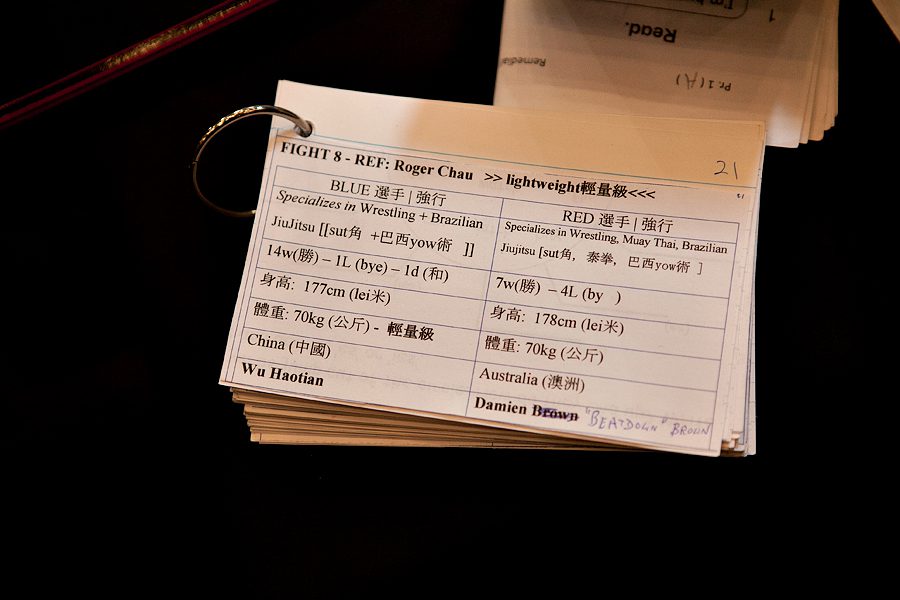 I'm
1
Read.
Remedia
Pr. I (A)
21
FIGHT 8 - REF: Roger Chau >> lightweight輕量級<<<
BLUE 選手 | 強行
Specializes in Wrestling + Brazilian
JiuJitsu [[sut角 +巴西yow術 ]]
14w(勝) – 1L (bye) – 1d (和)
身高: 177cm (lei米)
體重: 70kg (公斤) - 輕量級
China (中國)
Wu Haotian
RED 選手 | 強行
Specializes in Wrestling, Muay Thai, Brazilian
Jiujitsu [sut角, 泰拳, 巴西yow術 ]
7w(勝) – 4L (by )
身高: 178cm (lei米)
體重: 70kg (公斤)
Australia (澳洲)
Damien Brown "BEATDOWN" BROWN